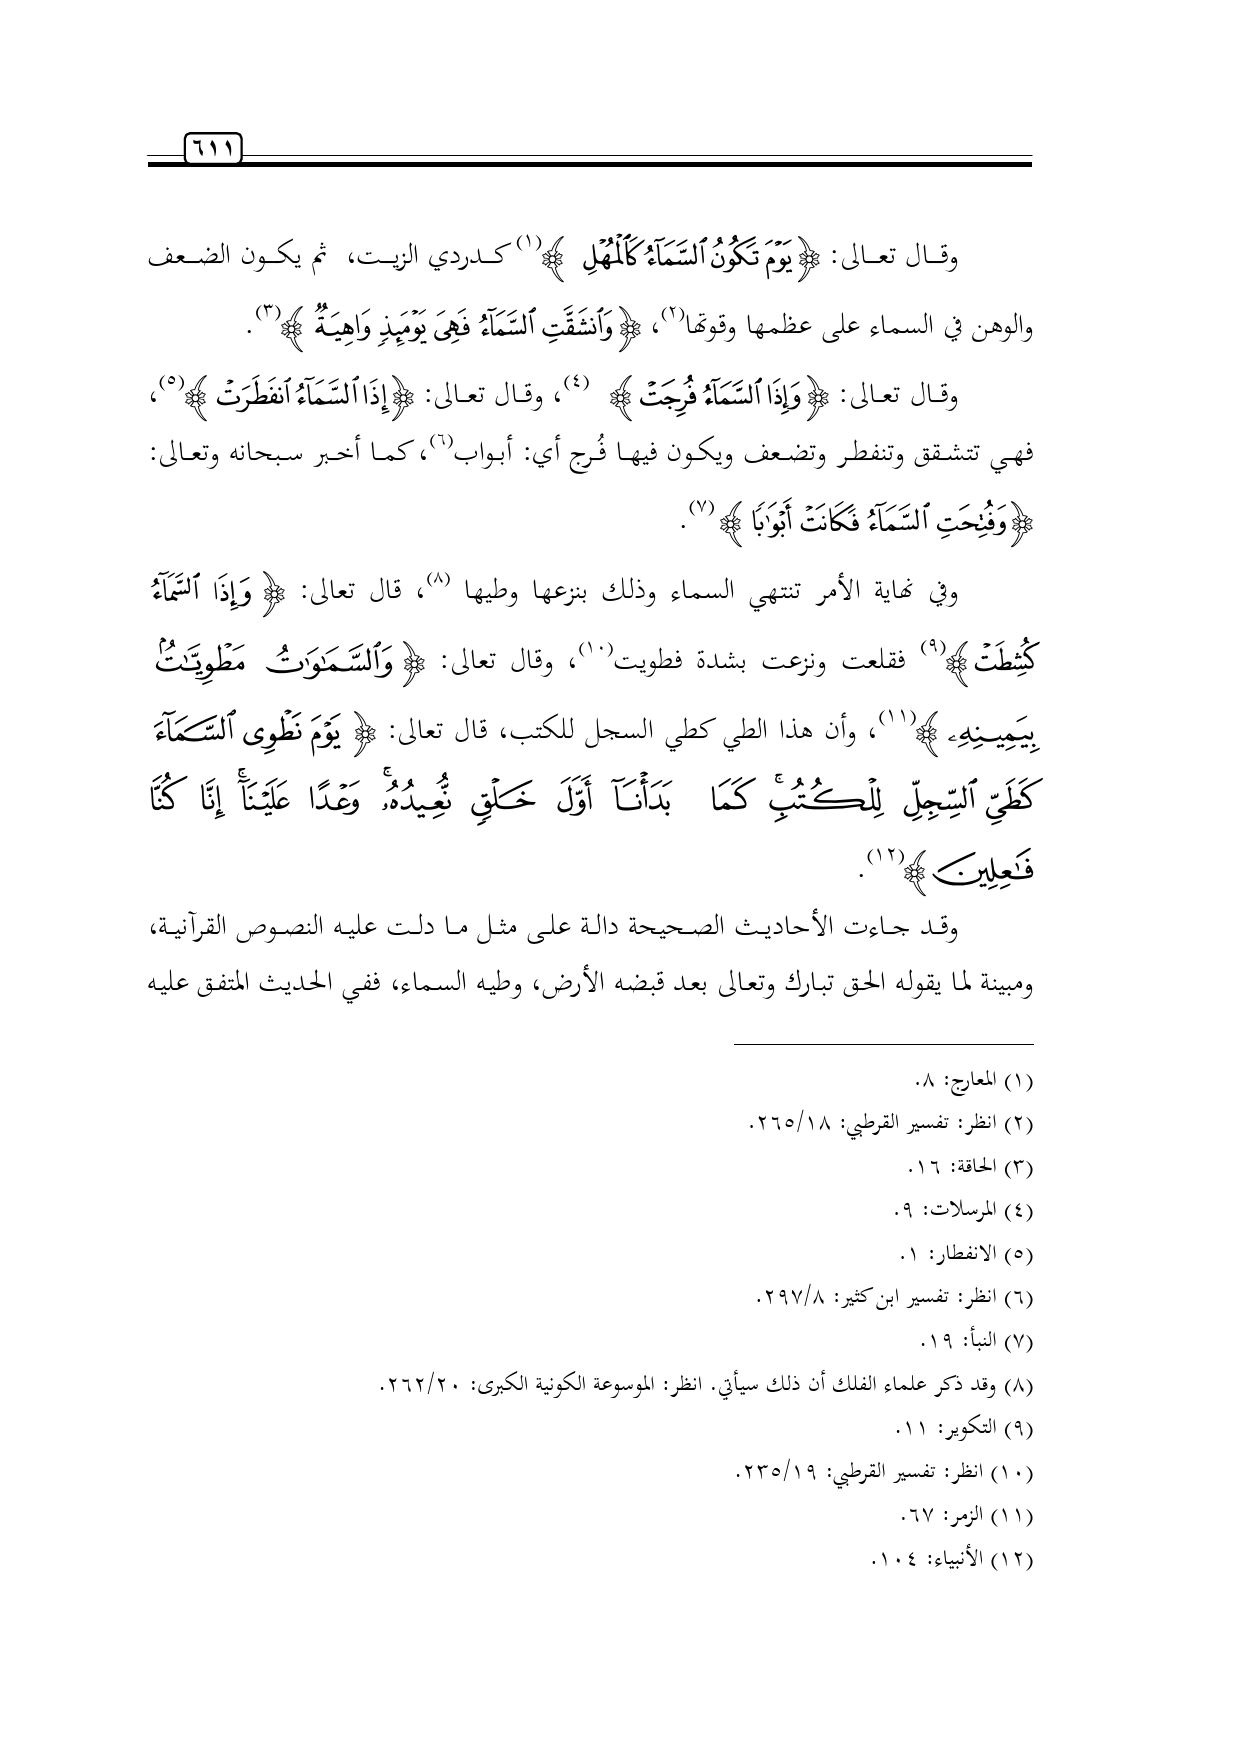 ٦١١
وقال تعالى: ﴿يَوْمَ تَكُونُ ٱلسَّمَآءُ كَٱلْمُهْلِ ﴾(١) كدردي الزيت، ثم يكون الضعف
والوهن في السماء على عظمها وقوتها(٢)، ﴿وَٱنشَقَّتِ ٱلسَّمَآءُ فَهِىَ يَوْمَئِذٍ وَاهِيَةٌ ﴾(٣).
وقال تعالى: ﴿وَإِذَا ٱلسَّمَآءُ فُرِجَتْ ﴾ (٤)، وقال تعالى: ﴿إِذَا ٱلسَّمَآءُ ٱنفَطَرَتْ ﴾(٥)،
فهي تتشقق وتنفطر وتضعف ويكون فيها فُرج أي: أبواب(٦)، كما أخبر سبحانه وتعالى:
﴿وَفُتِحَتِ ٱلسَّمَآءُ فَكَانَتْ أَبْوَٰبًا ﴾(٧).
وفي نهاية الأمر تنتهي السماء وذلك بنزعها وطيها (٨)، قال تعالى: ﴿ وَإِذَا ٱلسَّمَآءُ
كُشِطَتْ ﴾(٩) فقلعت ونزعت بشدة فطويت(١٠)، وقال تعالى: ﴿ وَٱلسَّمَٰوَٰتُ مَطْوِيَّٰتٌۢ
بِيَمِينِهِۦ ﴾(١١)، وأن هذا الطي كطي السجل للكتب، قال تعالى: ﴿ يَوْمَ نَطْوِى ٱلسَّمَآءَ
كَطَىِّ ٱلسِّجِلِّ لِلْكُتُبِ ۚ كَمَا بَدَأْنَآ أَوَّلَ خَلْقٍ نُّعِيدُهُۥ ۚ وَعْدًا عَلَيْنَآ ۚ إِنَّا كُنَّا
فَٰعِلِينَ ﴾(١٢).
وقد جاءت الأحاديث الصحيحة دالة على مثل ما دلت عليه النصوص القرآنية،
ومبينة لما يقوله الحق تبارك وتعالى بعد قبضه الأرض، وطيه السماء، ففي الحديث المتفق عليه
(١) المعارج: ٨.
(٢) انظر: تفسير القرطبي: ٢٦٥/١٨.
(٣) الحاقة: ١٦.
(٤) المرسلات: ٩.
(٥) الانفطار: ١.
(٦) انظر: تفسير ابن كثير: ٢٩٧/٨.
(٧) النبأ: ١٩.
(٨) وقد ذكر علماء الفلك أن ذلك سيأتي. انظر: الموسوعة الكونية الكبرى: ٢٦٢/٢٠.
(٩) التكوير: ١١.
(١٠) انظر: تفسير القرطبي: ٢٣٥/١٩.
(١١) الزمر: ٦٧.
(١٢) الأنبياء: ١٠٤.